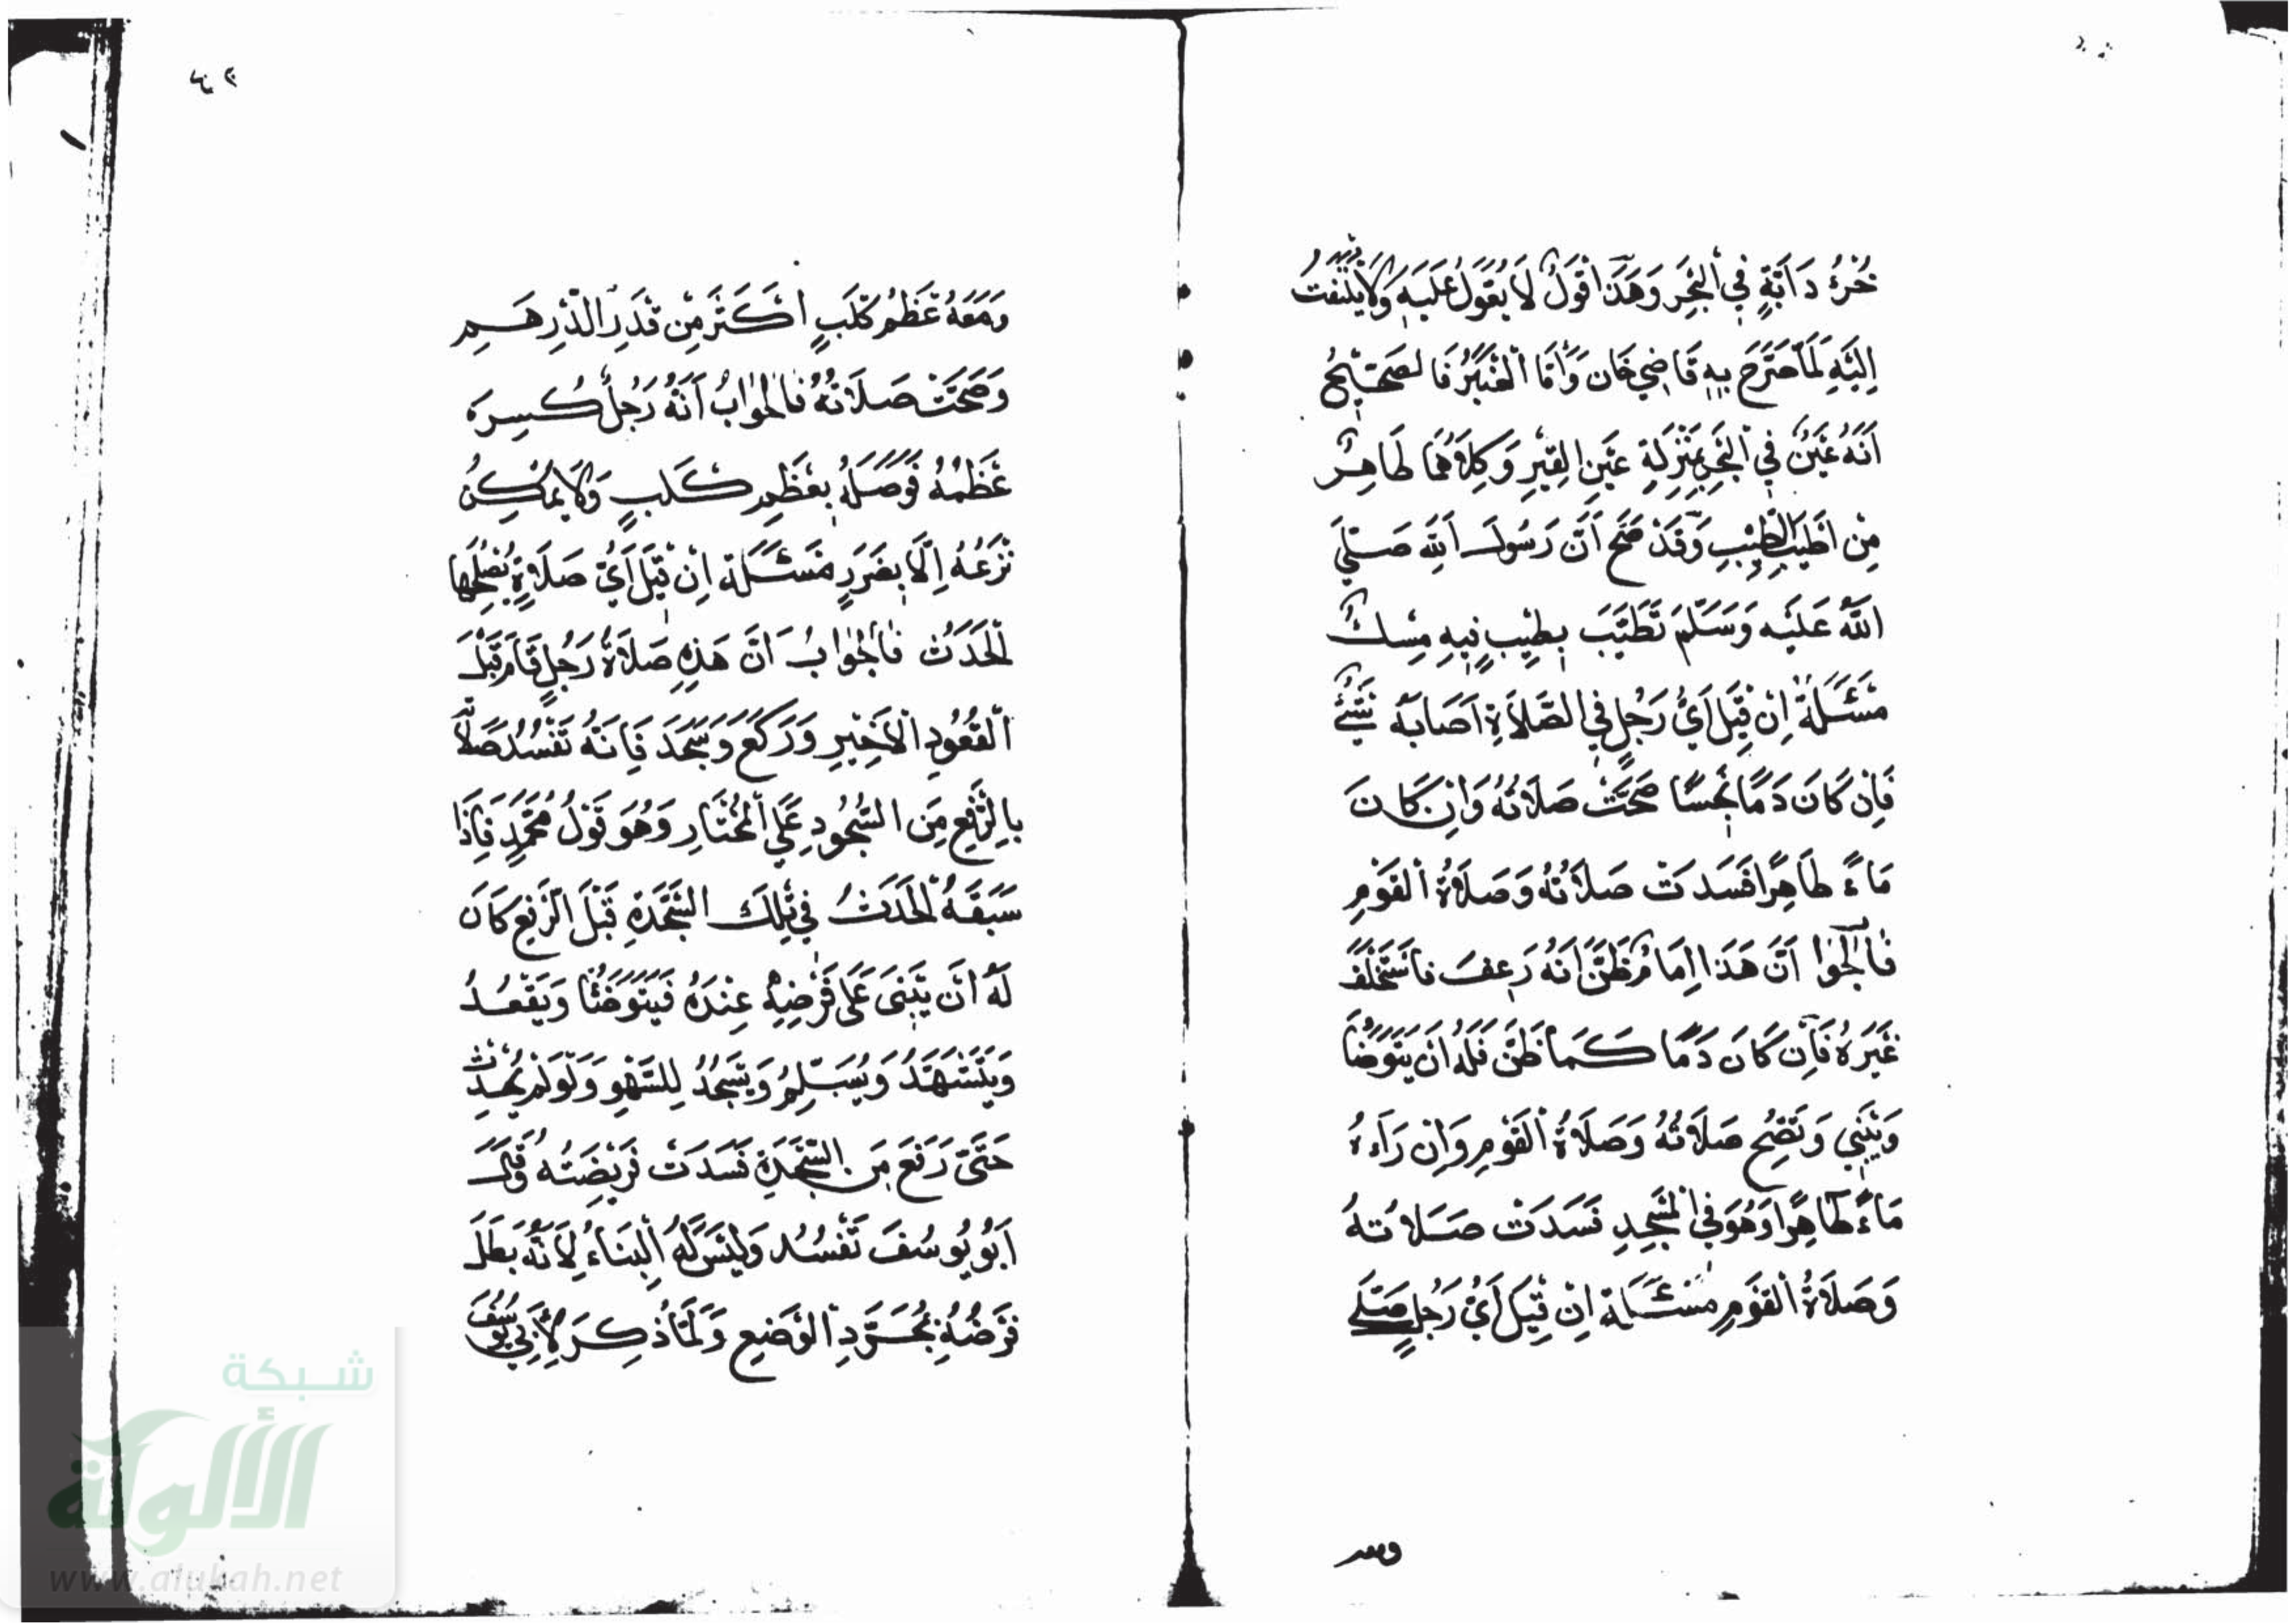 خُرْءُ دَابَّةٍ فِي الْبَحْرِ وَهَذَا قَوْلٌ لَا يُعَوَّلُ عَلَيْهِ وَلَا يُلْتَفَتُ
إِلَيْهِ كَمَا صَرَّحَ بِهِ قَاضِي خَان وَأَمَّا الْعَنْبَرُ فَالصَّحِيحُ
أَنَّهُ عَيْنٌ فِي الْبَحْرِ بِمَنْزِلَةِ عَيْنِ الْقِيرِ وَكِلَاهُمَا طَاهِرٌ
مِنْ أَطْيَبِ الطِّيبِ وَقَدْ صَحَّ أَنَّ رَسُولَ اللهِ صَلَّى
اللهُ عَلَيْهِ وَسَلَّمَ تَطَيَّبَ بِطِيبٍ فِيهِ مِسْكٌ
مَسْئَلَةٌ إِنْ قِيلَ أَيُّ رَجُلٍ فِي الصَّلَاةِ أَصَابَهُ شَيْءٌ
فَإِنْ كَانَ دَمًا نَجِسًا صَحَّتْ صَلَاتُهُ وَإِنْ كَانَ
مَاءً طَاهِرًا فَسَدَتْ صَلَاتُهُ وَصَلَاةُ الْقَوْمِ
فَالْجَوَا أَنَّ هَذَا إِمَامٌ ظَنَّ أَنَّهُ رَعِفَ فَاسْتَخْلَفَ
غَيْرَهُ فَإِنْ كَانَ دَمًا كَمَا ظَنَّ فَلَهُ أَنْ يَتَوَضَّأَ
وَيَبْنِي وَتَصِحُّ صَلَاتُهُ وَصَلَاةُ الْقَوْمِ وَإِنْ رَآهُ
مَاءً طَاهِرًا وَهُوَ فِي الْمَسْجِدِ فَسَدَتْ صَلَاتُهُ
وَصَلَاةُ الْقَوْمِ مَسْئَلَة إِنْ قِيلَ أَيُّ رَجُلٍ صَلَّى
وَمَعَهُ عَظْمُ كَلْبٍ أَكْثَرَ مِنْ قَدْرِ الدِّرْهَمِ
وَصَحَّتْ صَلَاتُهُ فَالْجَوَابُ أَنَّهُ رَجُلٌ كُسِرَ
عَظْمُهُ فَوَصَلَهُ بِعَظْمِ كَلْبٍ وَلَا يُمْكِنُ
نَزْعُهُ إِلَّا بِضَرَرٍ مَسْئَلَة إِنْ قِيلَ أَيُّ صَلَاةٍ يُصْلِحُهَا
الْحَدَثُ فَالْجَوَابُ أَنَّ هَذِهِ صَلَاةُ رَجُلٍ قَامَ قَبْلَ
الْقُعُودِ الْأَخِيرِ وَرَكَعَ وَسَجَدَ فَإِنَّهُ تَفْسُدُ صَلَاتُهُ
بِالرَّفْعِ مِنَ السُّجُودِ عَلَى الْمُخْتَارِ وَهُوَ قَوْلُ مُحَمَّدٍ فَإِذَا
سَبَقَهُ الْحَدَثُ فِي تِلْكَ السَّجْدَةِ قَبْلَ الرَّفْعِ كَانَ
لَهُ أَنْ يَبْنَى عَلَى فَرْضِهِ عِنْدَهُ فَيَتَوَضَّأُ وَيَقْعُدُ
وَيَتَشَهَّدُ وَيُسَلِّمُ وَيَسْجُدُ لِلسَّهْوِ وَلَوْ لَمْ يُحْدِثْ
حَتَّى رَفَعَ مِنَ السَّجْدَةِ فَسَدَتْ فَرِيضَتُهُ وَقَالَ
أَبُو يُوسُفَ تَفْسُدُ وَلَيْسَ لَهُ الْبِنَاءُ لِأَنَّهُ بَطَلَ
فَرْضُهُ بِمُجَرَّدِ الْوَضْعِ وَلَمَّا ذُكِرَ لِأَبِي يُوسُفَ